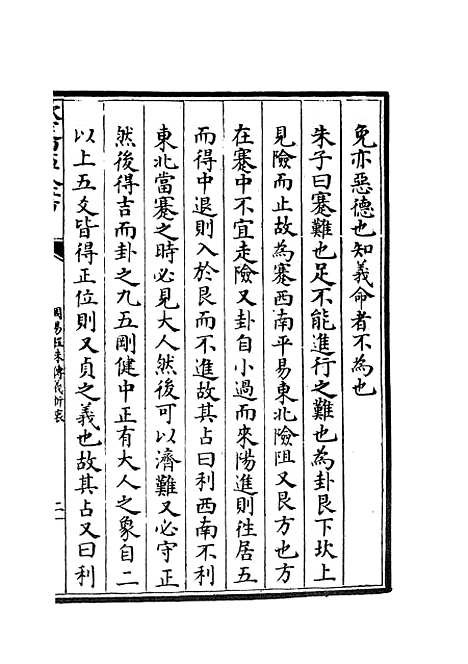 免亦惡德也知義命者不為也
朱子曰蹇難也足不能進行之難也為卦艮下坎上
見險而止故為蹇西南平易東北險阻又艮方也方
在蹇中不宜走險又卦自小過而來陽進則往居五
而得中退則入於艮而不進故其占曰利西南不利
東北當蹇之時必見大人然後可以濟難又必守正
然後得吉而卦之九五剛健中正有大人之象自二
以上五爻皆得正位則又貞之義也故其占又曰利
周易經朱傳義折衷